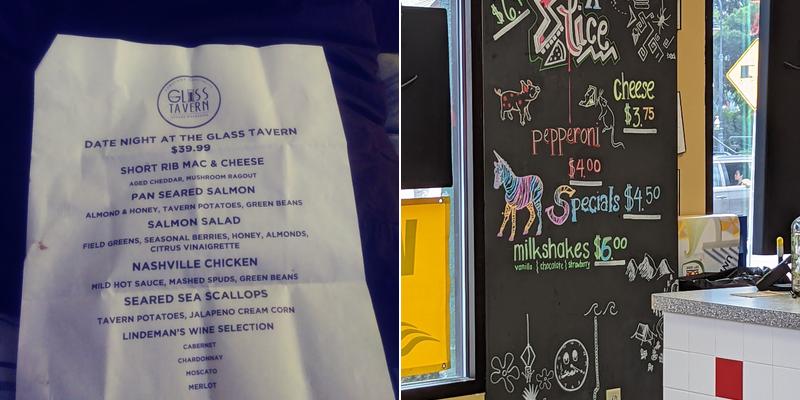 GLASS
TAVERN
DATE NIGHT AT THE GLASS TAVERN
$39.99
SHORT RIB MAC & CHEESE
AGED CHEDDAR, MUSHROOM RAGOUT
PAN SEARED SALMON
ALMOND & HONEY, TAVERN POTATOES, GREEN BEANS
SALMON SALAD
FIELD GREENS, SEASONAL BERRIES, HONEY, ALMONDS,
CITRUS VINAIGRETTE
NASHVILLE CHICKEN
MILD HOT SAUCE, MASHED SPUDS, GREEN BEANS
SEARED SEA SCALLOPS
TAVERN POTATOES, JALAPENO CREAM CORN
LINDEMAN'S WINE SELECTION
CABERNET
CHARDONNAY
MOSCATO
MERLOT
Slice
Cheese
$3.75
pepperoni
$4.00
Specials $4.50
milkshakes $6.00
vanilla } chocolate } strawberry